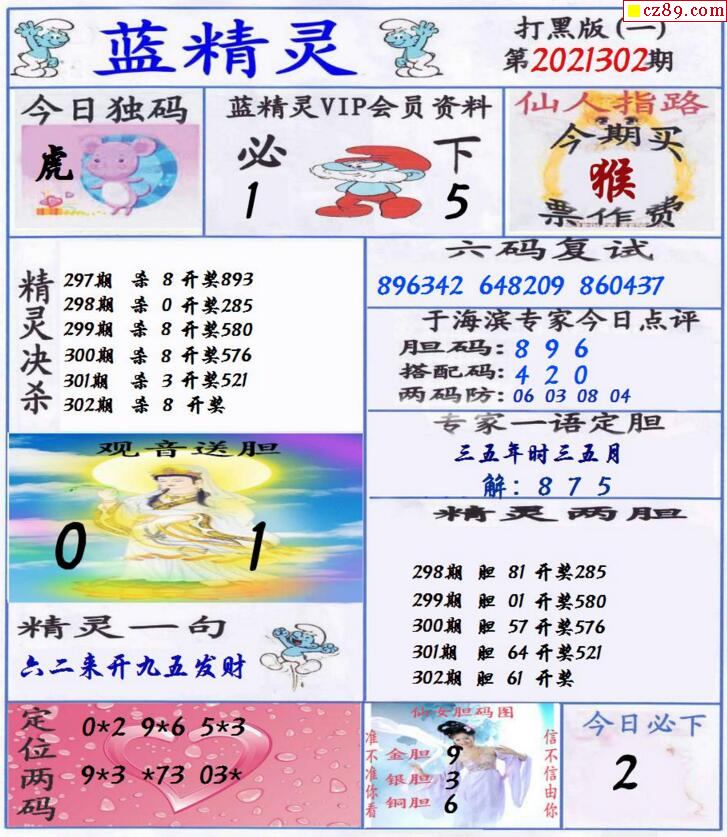 cz89.com
蓝精灵
打黑版(一)
第2021302期
今日独码
虎
蓝精灵VIP会员资料
必 下
1 5
仙人指路
今期买
猴
票作费
精灵决杀
297期 杀 8 开奖893
298期 杀 0 开奖285
299期 杀 8 开奖580
300期 杀 8 开奖576
301期 杀 3 开奖521
302期 杀 8 开奖
六码复试
896342 648209 860437
于海滨专家今日点评
胆码: 8 9 6
搭配码: 4 2 0
两码防: 06 03 08 04
专家一语定胆
三五年时三五月
解: 8 7 5
观音送胆
0 1
精灵两胆
298期 胆 81 开奖285
299期 胆 01 开奖580
300期 胆 57 开奖576
301期 胆 64 开奖521
302期 胆 61 开奖
精灵一句
六二来开九五发财
定位两码
0*2 9*6 5*3
9*3 *73 03*
仙女胆码图
准不准你看
金胆 9
银胆 3
铜胆 6
信不信由你
今日必下
2